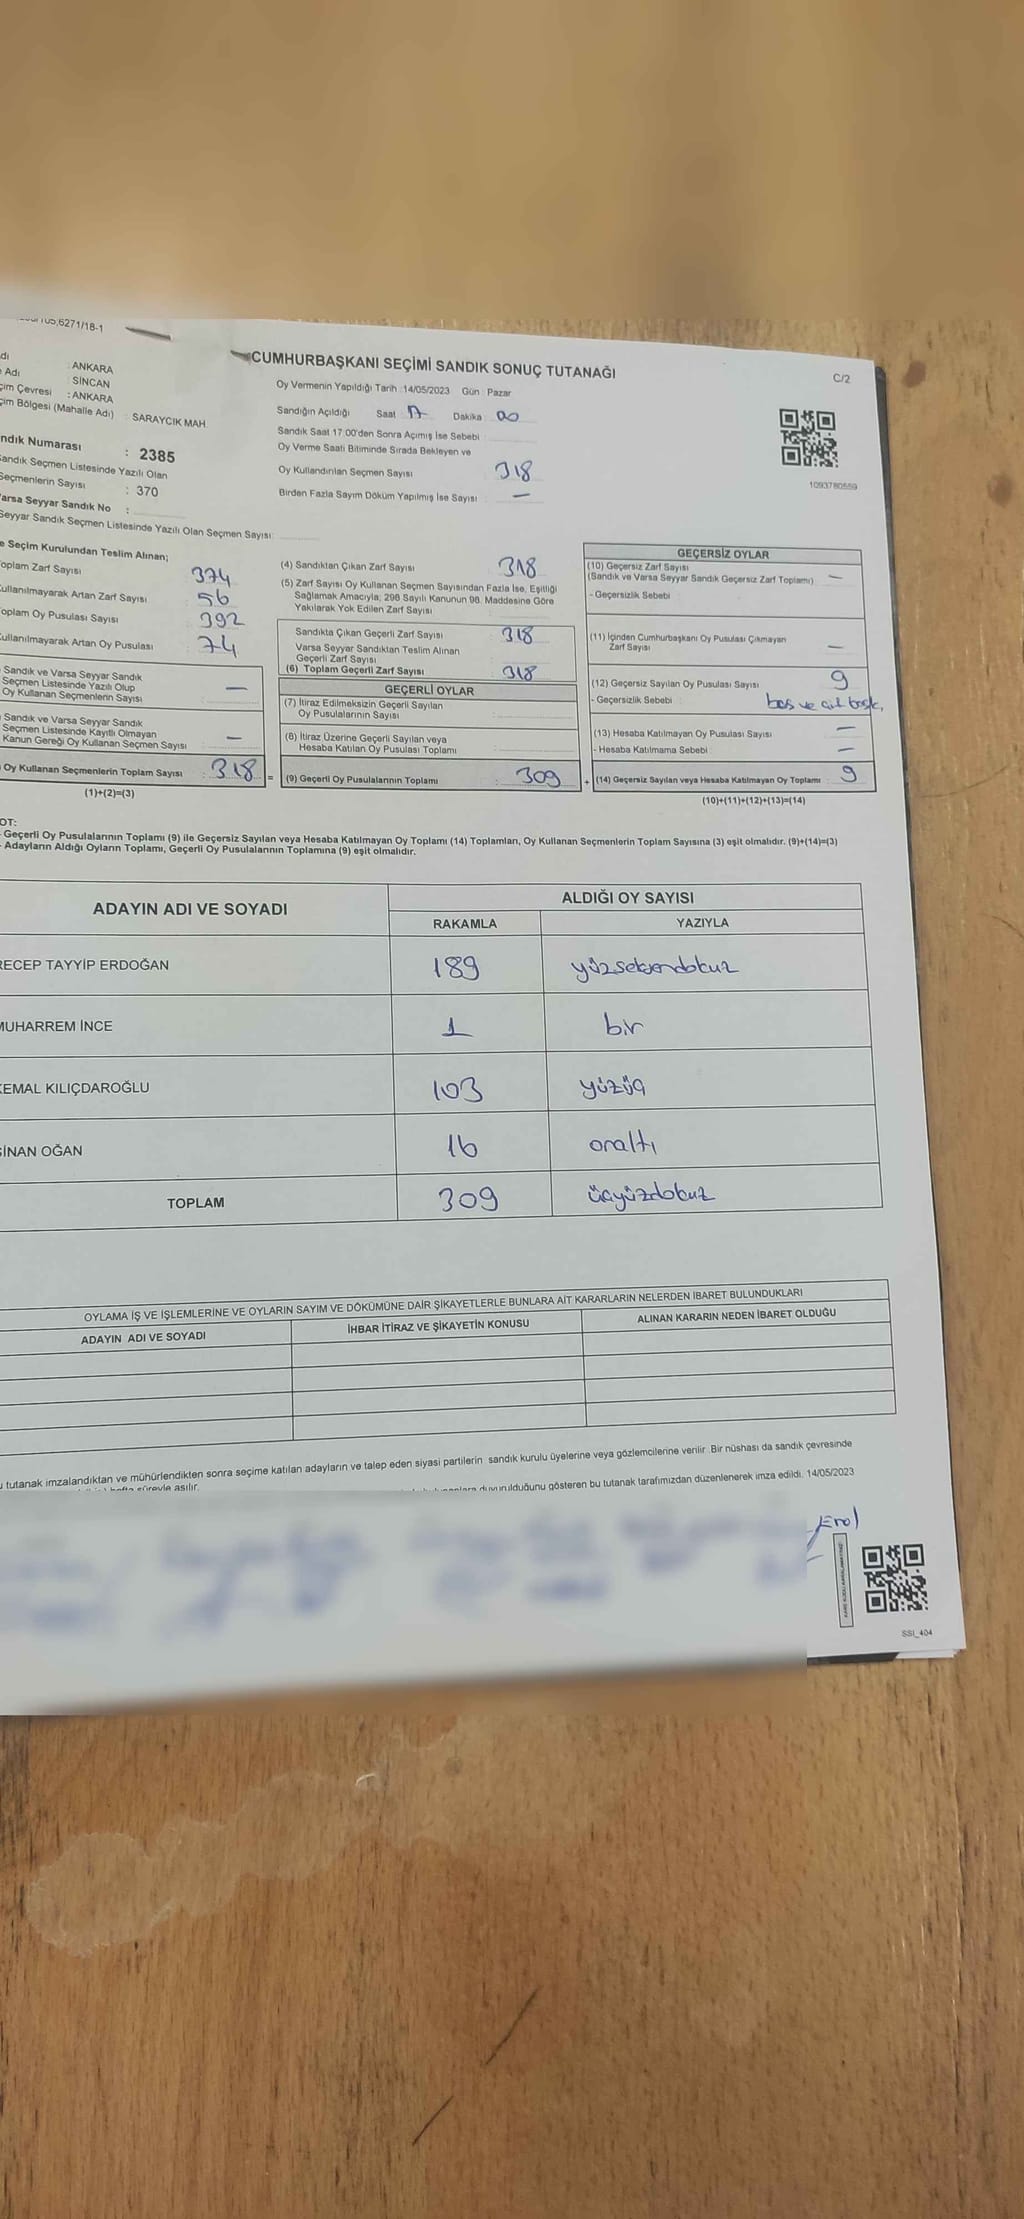 6271/18-1
CUMHURBAŞKANI SEÇİMİ SANDIK SONUÇ TUTANAĞI
C/2
dı : ANKARA
Adı : SİNCAN
çim Çevresi : ANKARA
çim Bölgesi (Mahalle Adı) : SARAYCIK MAH.
ndık Numarası : 2385
Sandık Seçmen Listesinde Yazılı Olan
Seçmenlerin Sayısı : 370
Varsa Seyyar Sandık No :
Seyyar Sandık Seçmen Listesinde Yazılı Olan Seçmen Sayısı:
Oy Vermenin Yapıldığı Tarih :14/05/2023 Gün : Pazar
Sandığın Açıldığı Saat 17 Dakika : 00
Sandık Saat 17:00'den Sonra Açımış İse Sebebi :
Oy Verme Saati Bitiminde Sırada Bekleyen ve
Oy Kullandırılan Seçmen Sayısı 318
Birden Fazla Sayım Döküm Yapılmış İse Sayısı : —
1093780559
e Seçim Kurulundan Teslim Alınan;
oplam Zarf Sayısı 374
ullanılmayarak Artan Zarf Sayısı 56
oplam Oy Pusulası Sayısı 392
ullanılmayarak Artan Oy Pusulası 74
Sandık ve Varsa Seyyar Sandık
Seçmen Listesinde Yazılı Olup
Oy Kullanan Seçmenlerin Sayısı —
Sandık ve Varsa Seyyar Sandık
Seçmen Listesinde Kayıtlı Olmayan
Kanun Gereği Oy Kullanan Seçmen Sayısı —
Oy Kullanan Seçmenlerin Toplam Sayısı : 318 =
(1)+(2)=(3)
(4) Sandıktan Çıkan Zarf Sayısı 318
(5) Zarf Sayısı Oy Kullanan Seçmen Sayısından Fazla İse, Eşitliği
Sağlamak Amacıyla; 298 Sayılı Kanunun 98. Maddesine Göre
Yakılarak Yok Edilen Zarf Sayısı
Sandıkta Çıkan Geçerli Zarf Sayısı 318
Varsa Seyyar Sandıktan Teslim Alınan
Geçerli Zarf Sayısı
(6) Toplam Geçerli Zarf Sayısı 318
GEÇERLİ OYLAR
(7) İtiraz Edilmeksizin Geçerli Sayılan
Oy Pusulalarının Sayısı :
(8) İtiraz Üzerine Geçerli Sayılan veya
Hesaba Katılan Oy Pusulası Toplamı :
(9) Geçerli Oy Pusulalarının Toplamı : 309 +
GEÇERSİZ OYLAR
(10) Geçersiz Zarf Sayısı
(Sandık ve Varsa Seyyar Sandık Geçersiz Zarf Toplamı) —
- Geçersizlik Sebebi
(11) İçinden Cumhurbaşkanı Oy Pusulası Çıkmayan
Zarf Sayısı —
(12) Geçersiz Sayılan Oy Pusulası Sayısı 9
- Geçersizlik Sebebi boş ve çift baskı
(13) Hesaba Katılmayan Oy Pusulası Sayısı —
- Hesaba Katılmama Sebebi —
(14) Geçersiz Sayılan veya Hesaba Katılmayan Oy Toplamı : 9
(10)+(11)+(12)+(13)=(14)
OT:
- Geçerli Oy Pusulalarının Toplamı (9) ile Geçersiz Sayılan veya Hesaba Katılmayan Oy Toplamı (14) Toplamları, Oy Kullanan Seçmenlerin Toplam Sayısına (3) eşit olmalıdır. (9)+(14)=(3)
- Adayların Aldığı Oyların Toplamı, Geçerli Oy Pusulalarının Toplamına (9) eşit olmalıdır.
ADAYIN ADI VE SOYADI
ALDIĞI OY SAYISI
RAKAMLA YAZIYLA
RECEP TAYYİP ERDOĞAN 189 yüzseksendokuz
MUHARREM İNCE 1 bir
KEMAL KILIÇDAROĞLU 103 yüzüç
SİNAN OĞAN 16 onaltı
TOPLAM 309 üçyüzdokuz
OYLAMA İŞ VE İŞLEMLERİNE VE OYLARIN SAYIM VE DÖKÜMÜNE DAİR ŞİKAYETLERLE BUNLARA AİT KARARLARIN NELERDEN İBARET BULUNDUKLARI
ADAYIN ADI VE SOYADI İHBAR İTİRAZ VE ŞİKAYETİN KONUSU ALINAN KARARIN NEDEN İBARET OLDUĞU
tutanak imzalandıktan ve mühürlendikten sonra seçime katılan adayların ve talep eden siyasi partilerin sandık kurulu üyelerine veya gözlemcilerine verilir. Bir nüshası da sandık çevresinde
hafta süreyle asılır. duyurulduğunu gösteren bu tutanak tarafımızdan düzenlenerek imza edildi. 14/05/2023
Erol
SSI_404